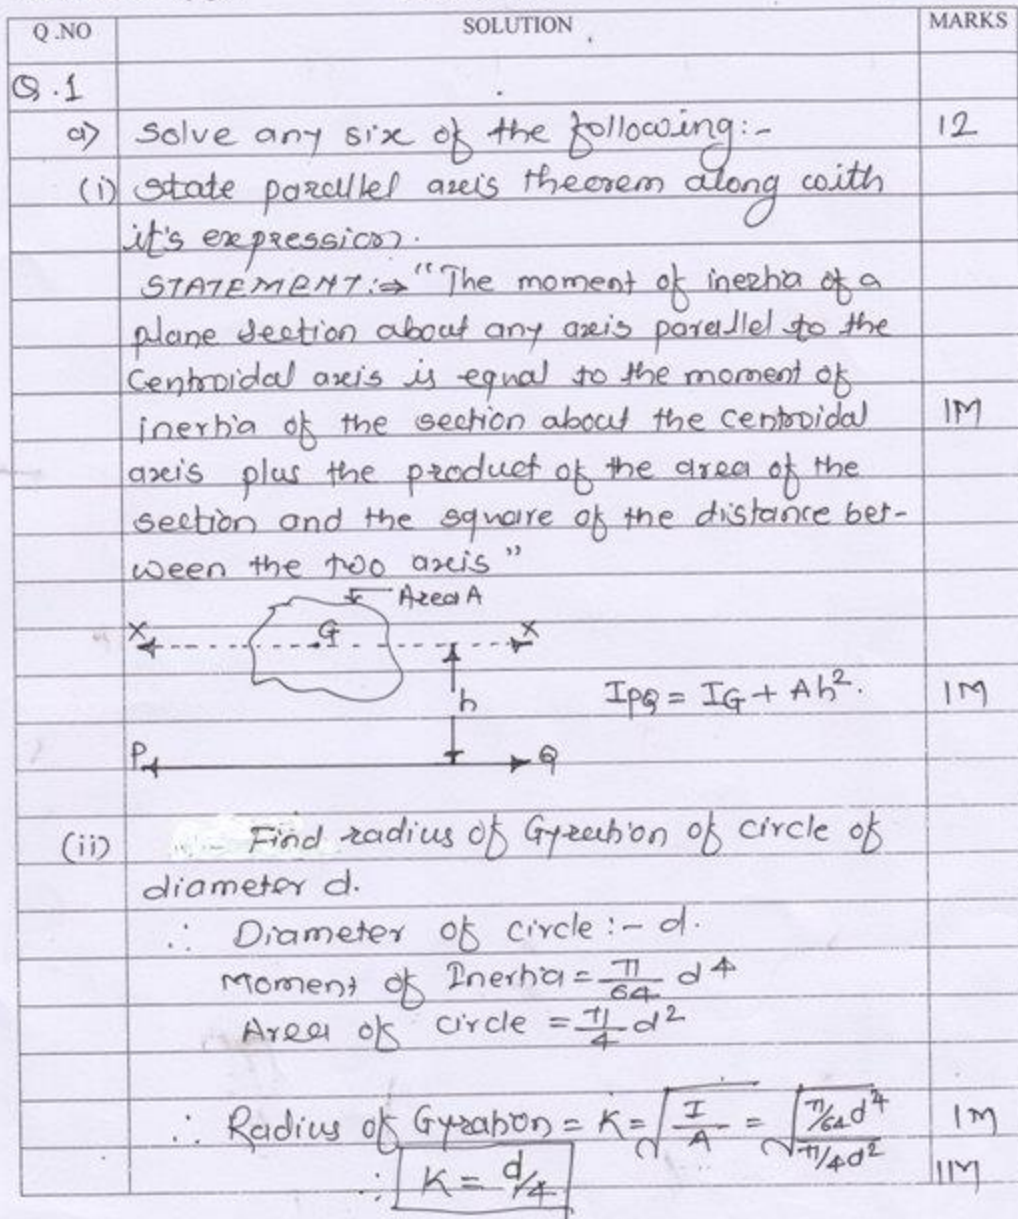 Q.NO SOLUTION MARKS
Q.1
a) Solve any six of the following:- 12
(i) State parallel axis theorem along with
it's expression.
STATEMENT:⇒ "The moment of inertia of a
plane section about any axis parallel to the
Centroidal axis is equal to the moment of
inertia of the section about the centroidal 1M
axis plus the product of the area of the
section and the square of the distance bet-
ween the two axis"
Area A
X G X
h IPQ = IG + Ah². 1M
P Q
(ii) Find radius of Gyration of circle of
diameter d.
∴ Diameter of circle :- d.
Moment of Inertia = π/64 d⁴
Area of circle = π/4 d²
∴ Radius of Gyration = K = √(I/A) = √(π/64 d⁴ / π/4 d²) 1M
∴ K = d/4 1M